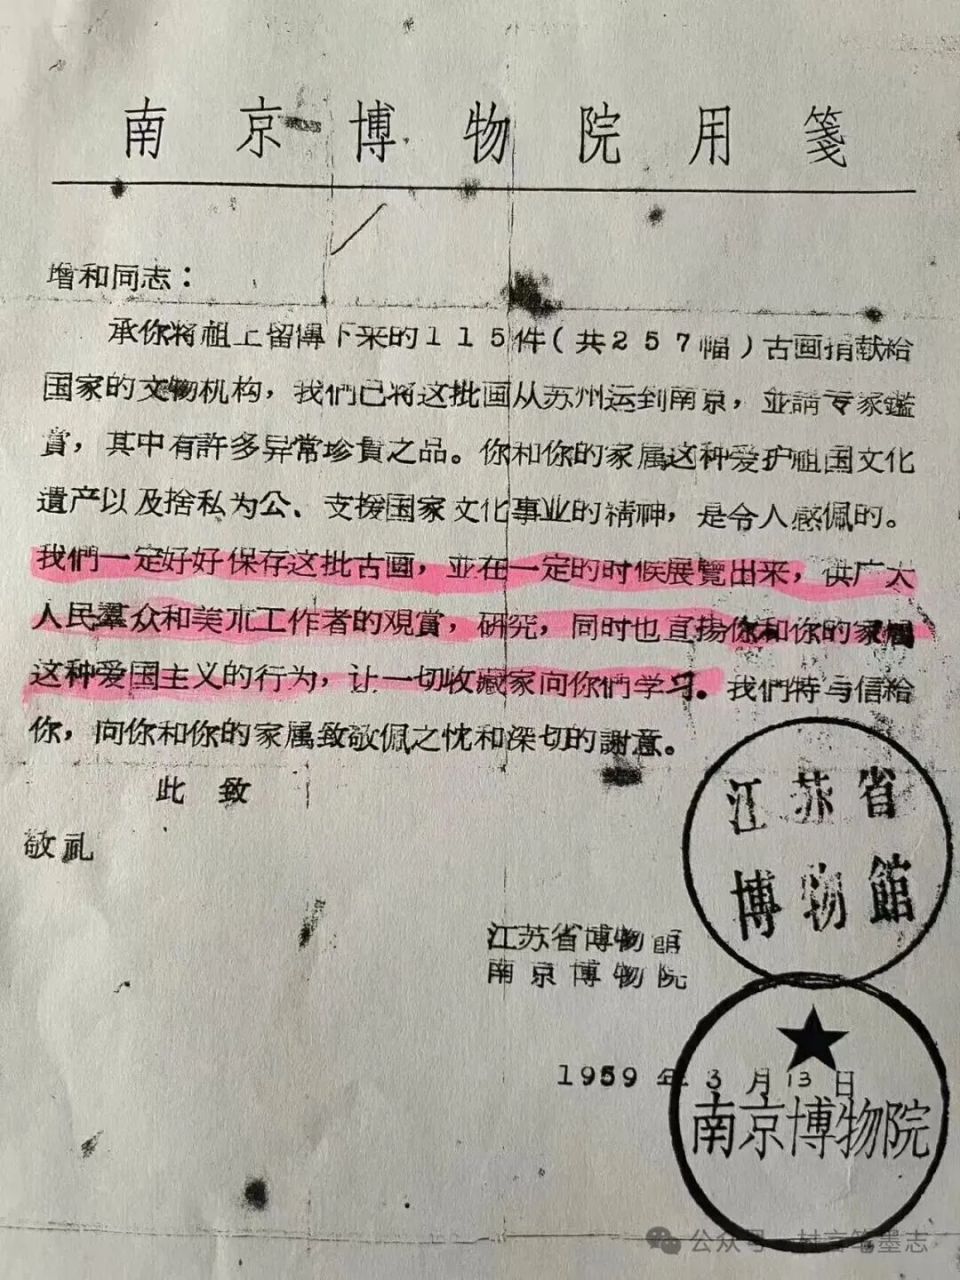 南京博物院用箋
增和同志：
承你将祖上留傳下来的115件(共257幅)古画捐献給
国家的文物机构，我們已将这批画从苏州运到南京，並請专家鑑
賞，其中有許多异常珍貴之品。你和你的家属这种爱护祖国文化
遺产以及捨私为公、支援国家文化事业的精神，是令人感佩的。
我們一定好好保存这批古画，並在一定的时候展覽出来，供广大
人民羣众和美朮工作者的观賞，研究，同时也直揚你和你的家属
这种爱国主义的行为，让一切收藏家向你們学习。我們特与信給
你，向你和你的家属致敬佩之忱和深切的謝意。
此致
敬礼
江苏省
博物館
江苏省博物館
南京博物院
1959年3月13日
南京博物院
公众号
笔墨志